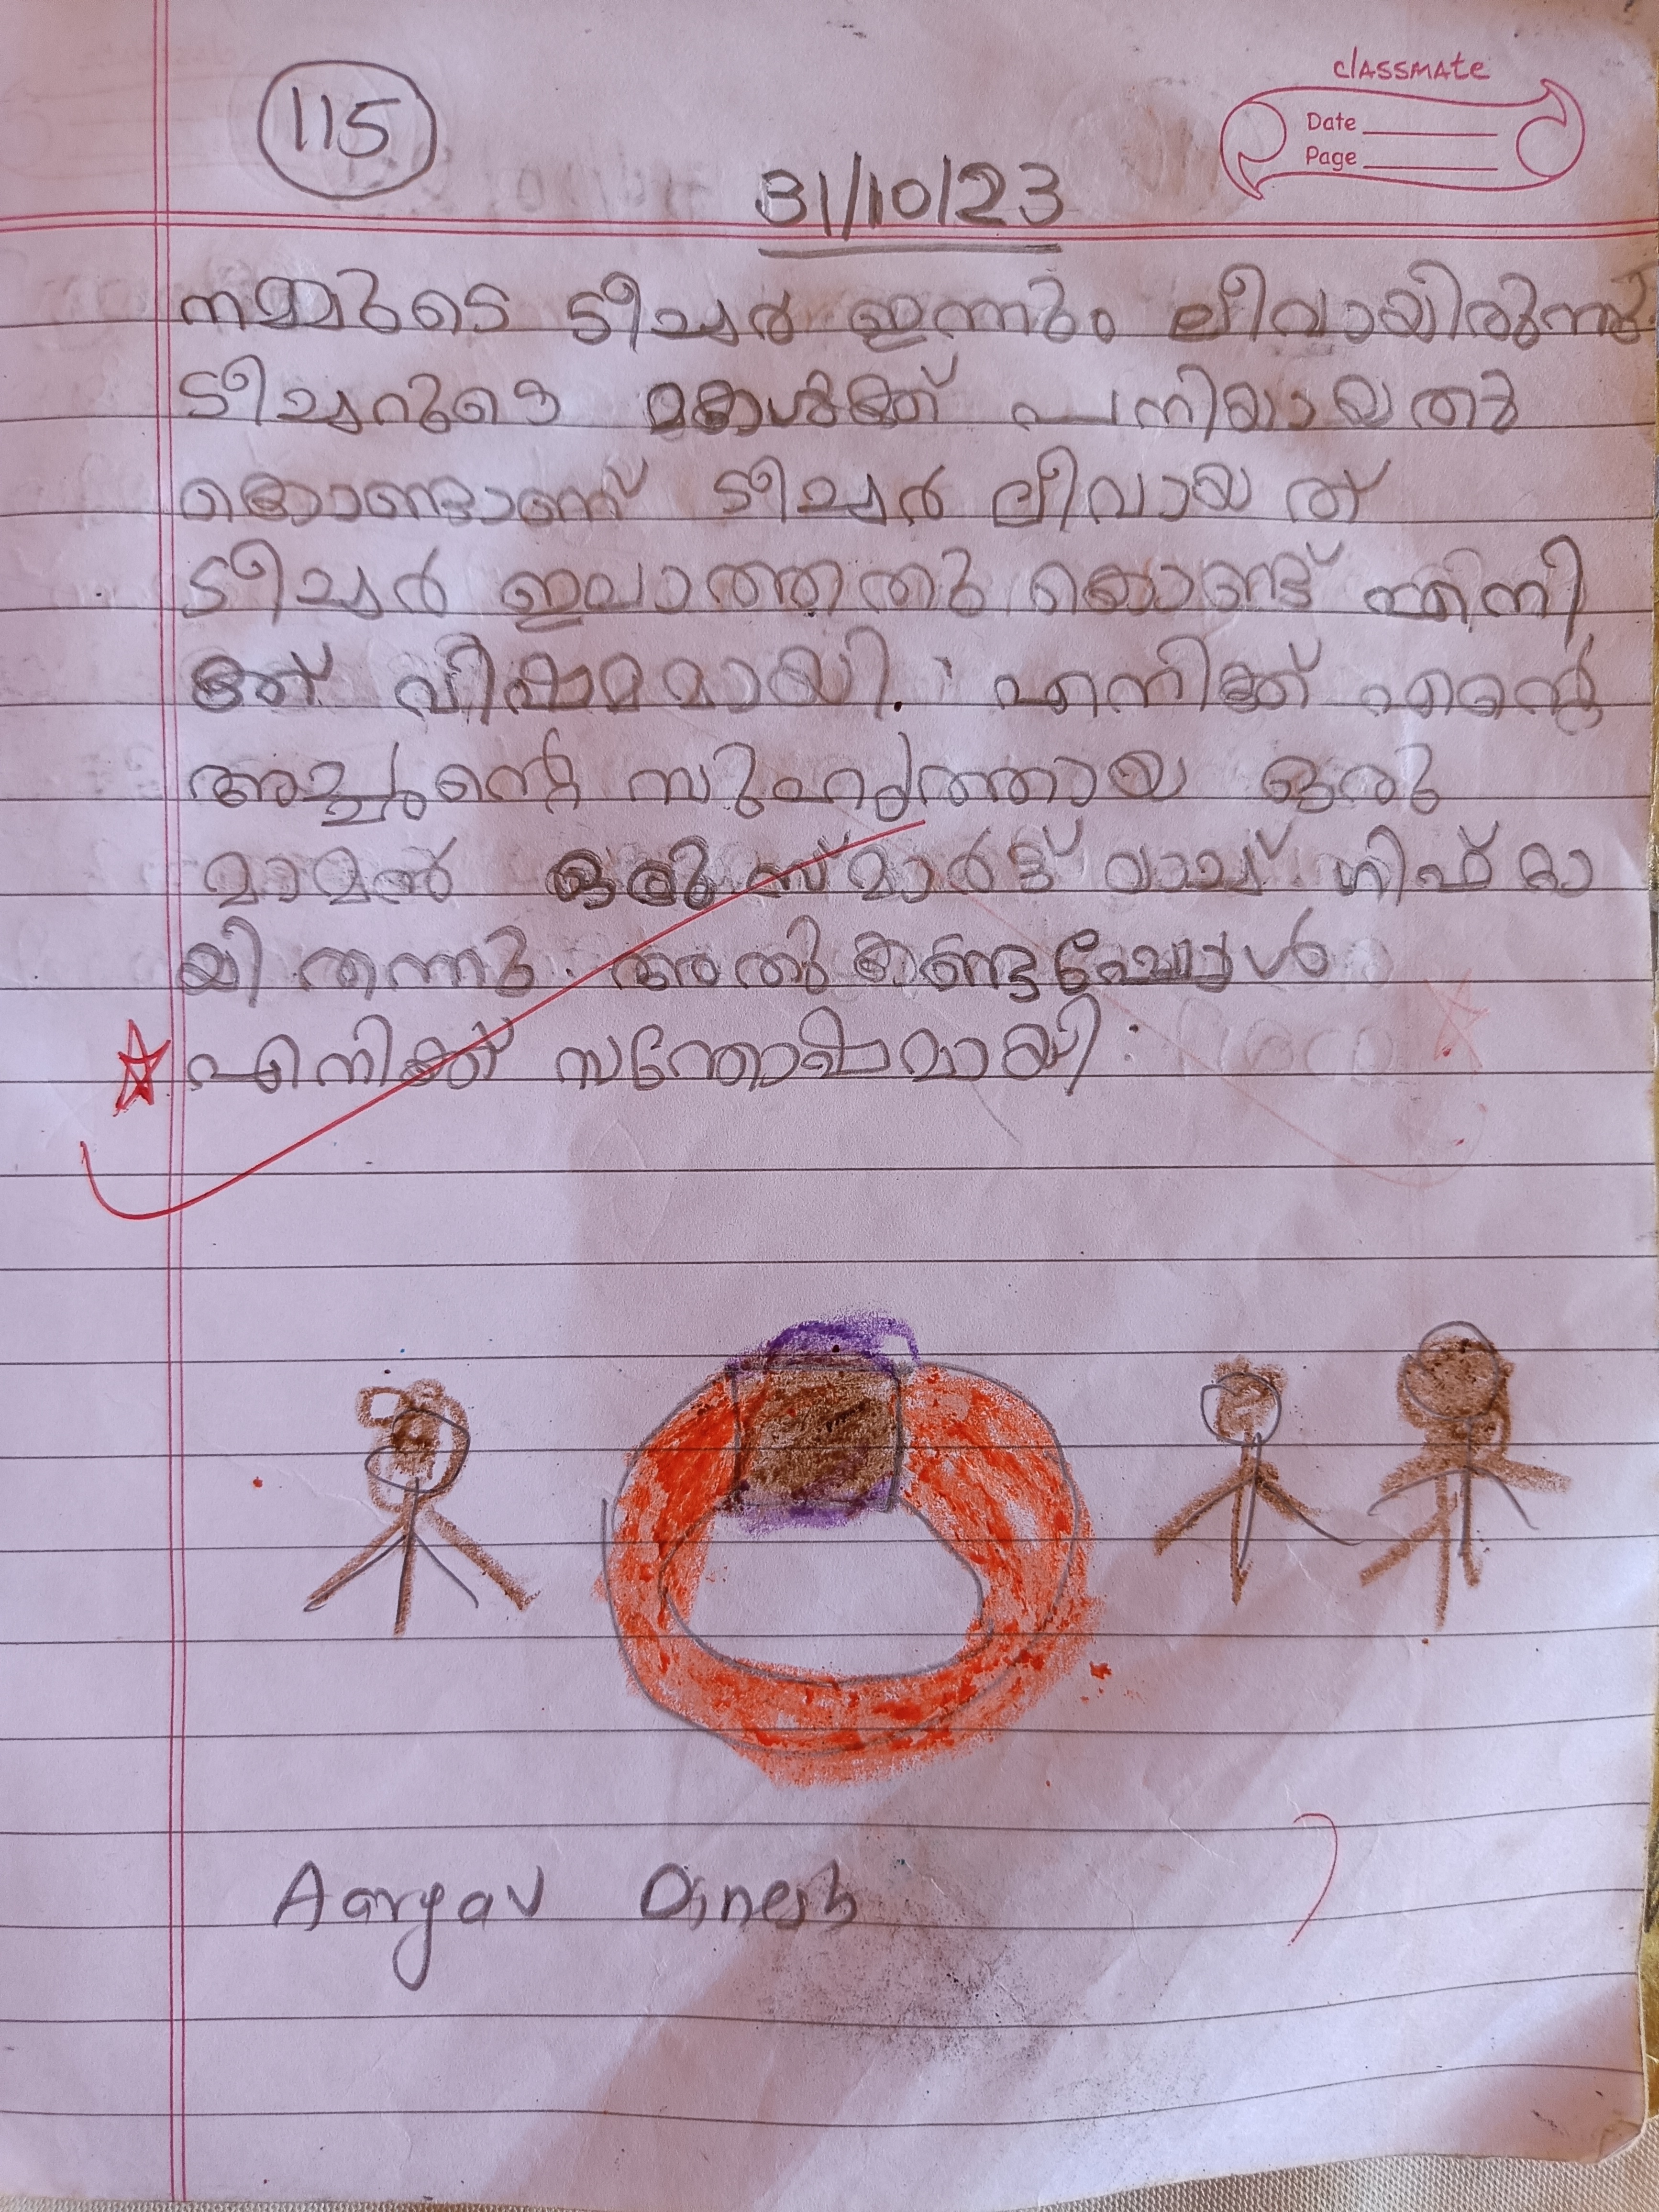 115
classmate
Date
Page
31/10/23
നമ്മുടെ ടീച്ചർ ഇന്നും ലീവായിരുന്നു
ടീച്ചറുടെ മകൾക്ക് പനിയായതു
കൊണ്ടാണ് ടീച്ചർ ലീവായത്
ടീച്ചർ ഇലാത്തതു കൊണ്ട് എനി
ക്ക് വീഷമമായി. എനിക്ക് എന്റെ
അച്ചന്റെ സുഹൃത്തായ ഒരു
മാമൻ ഒരു സ്മാർട്ട് വാച്ച് ഗിഫ്റ്റാ
യി തന്നു. അതു കണ്ടപ്പോൾ
എനിക്ക് സന്തോഷമായി.
Aargav Dinesh